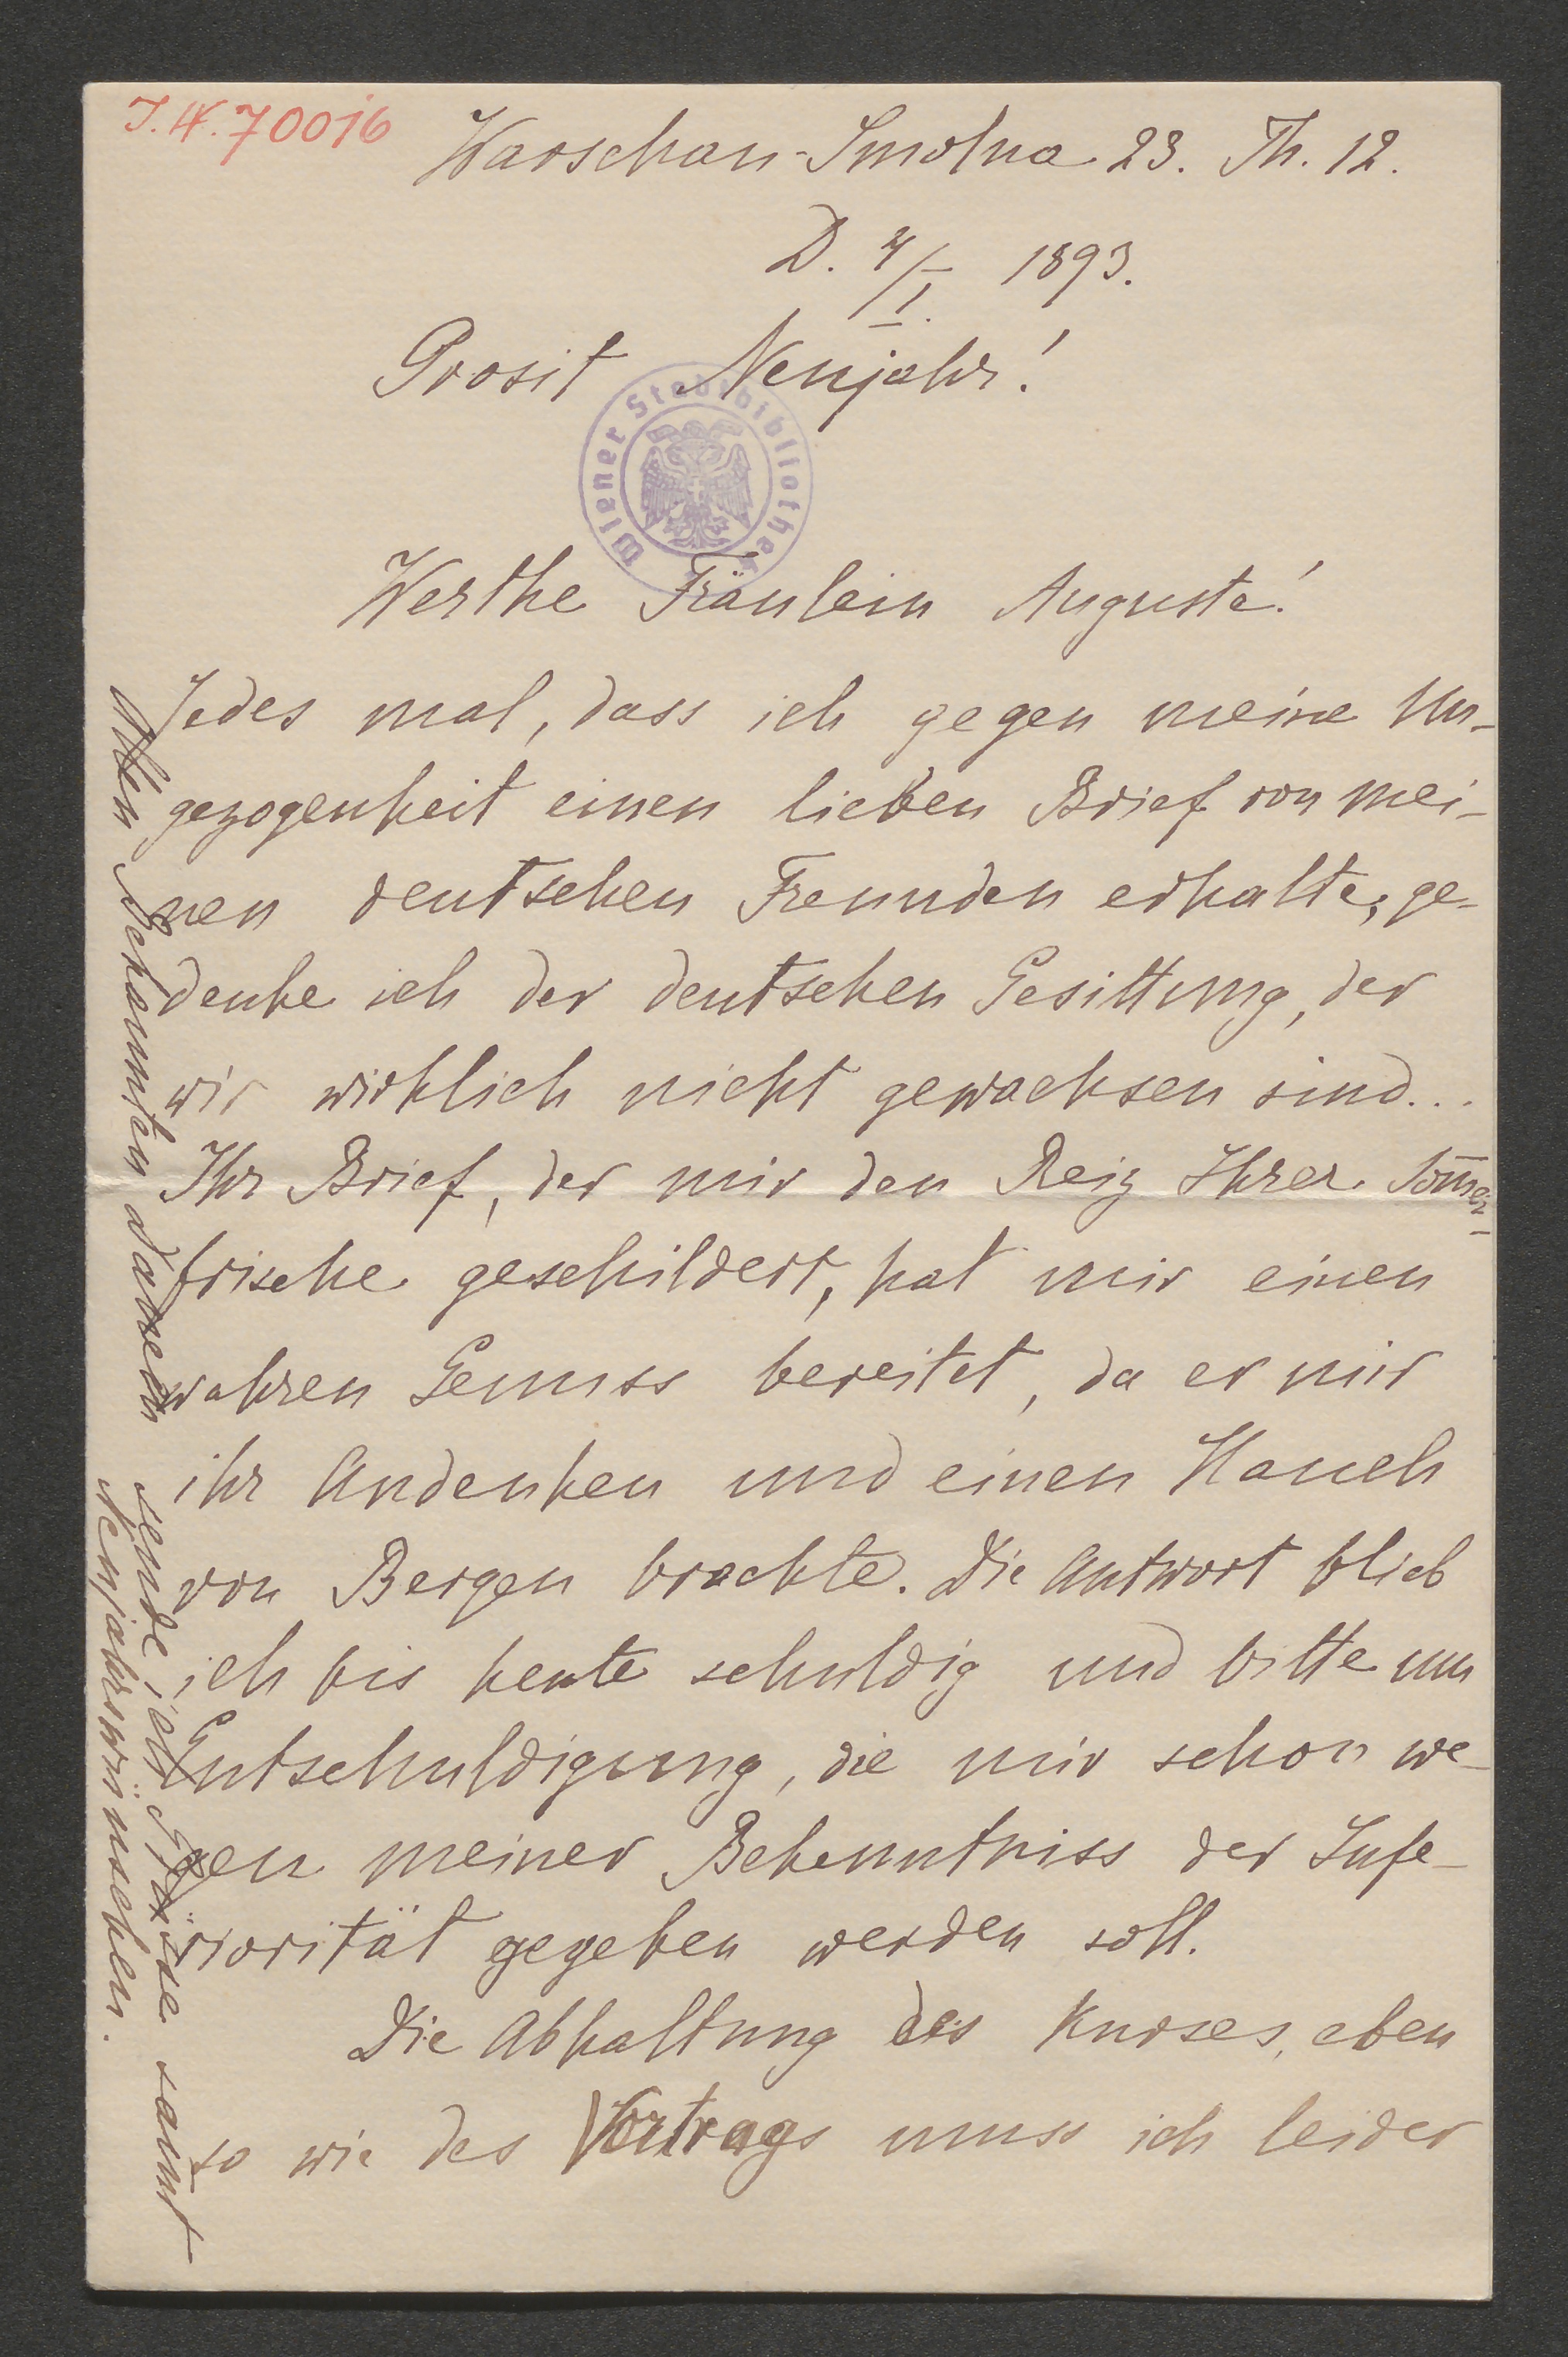 J. N. 70016
Warschau-Smolna 23. Th. 12.
D. 4/I. 1893.
Prosit Neujahr!
Wiener Stadtbibliothek
Werthe Fräulein Auguste!
Jedes mal, dass ich gegen meine Un-
gezogenheit einen lieben Brief von mei-
nen deutschen Freunden erhalte, ge-
denke ich der deutschen Gesittung, der
wir wirklich nicht gewachsen sind...
Ihr Brief, der mir den Reiz Ihrer Som̄er-
frische geschildert, hat mir einen
wahren Genuss bereitet, da er mir
ihr Andenken und einen Hauch
von Bergen brachte. Die Antwort blieb
ich bis heute schuldig und bitte um
Entschuldigung, die mir schon we-
gen meiner Bekenntniss der Infe-
riorität gegeben werden soll.
Die Abhaltung des Kurses, eben
so wie des Vortrags muss ich leider
Allen Bekannten daheim sende ich Grüsse samt
Neujahrswünschen.